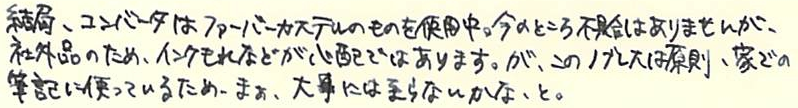 結局、コンバータはファーバーカステルのものを使用中。今のところ不具合はありませんが、
社外品のため、インクもれなどが心配ではあります。が、このノブレスは原則、家での
筆記に使っているため、まぁ、大事には至らないかな、と。